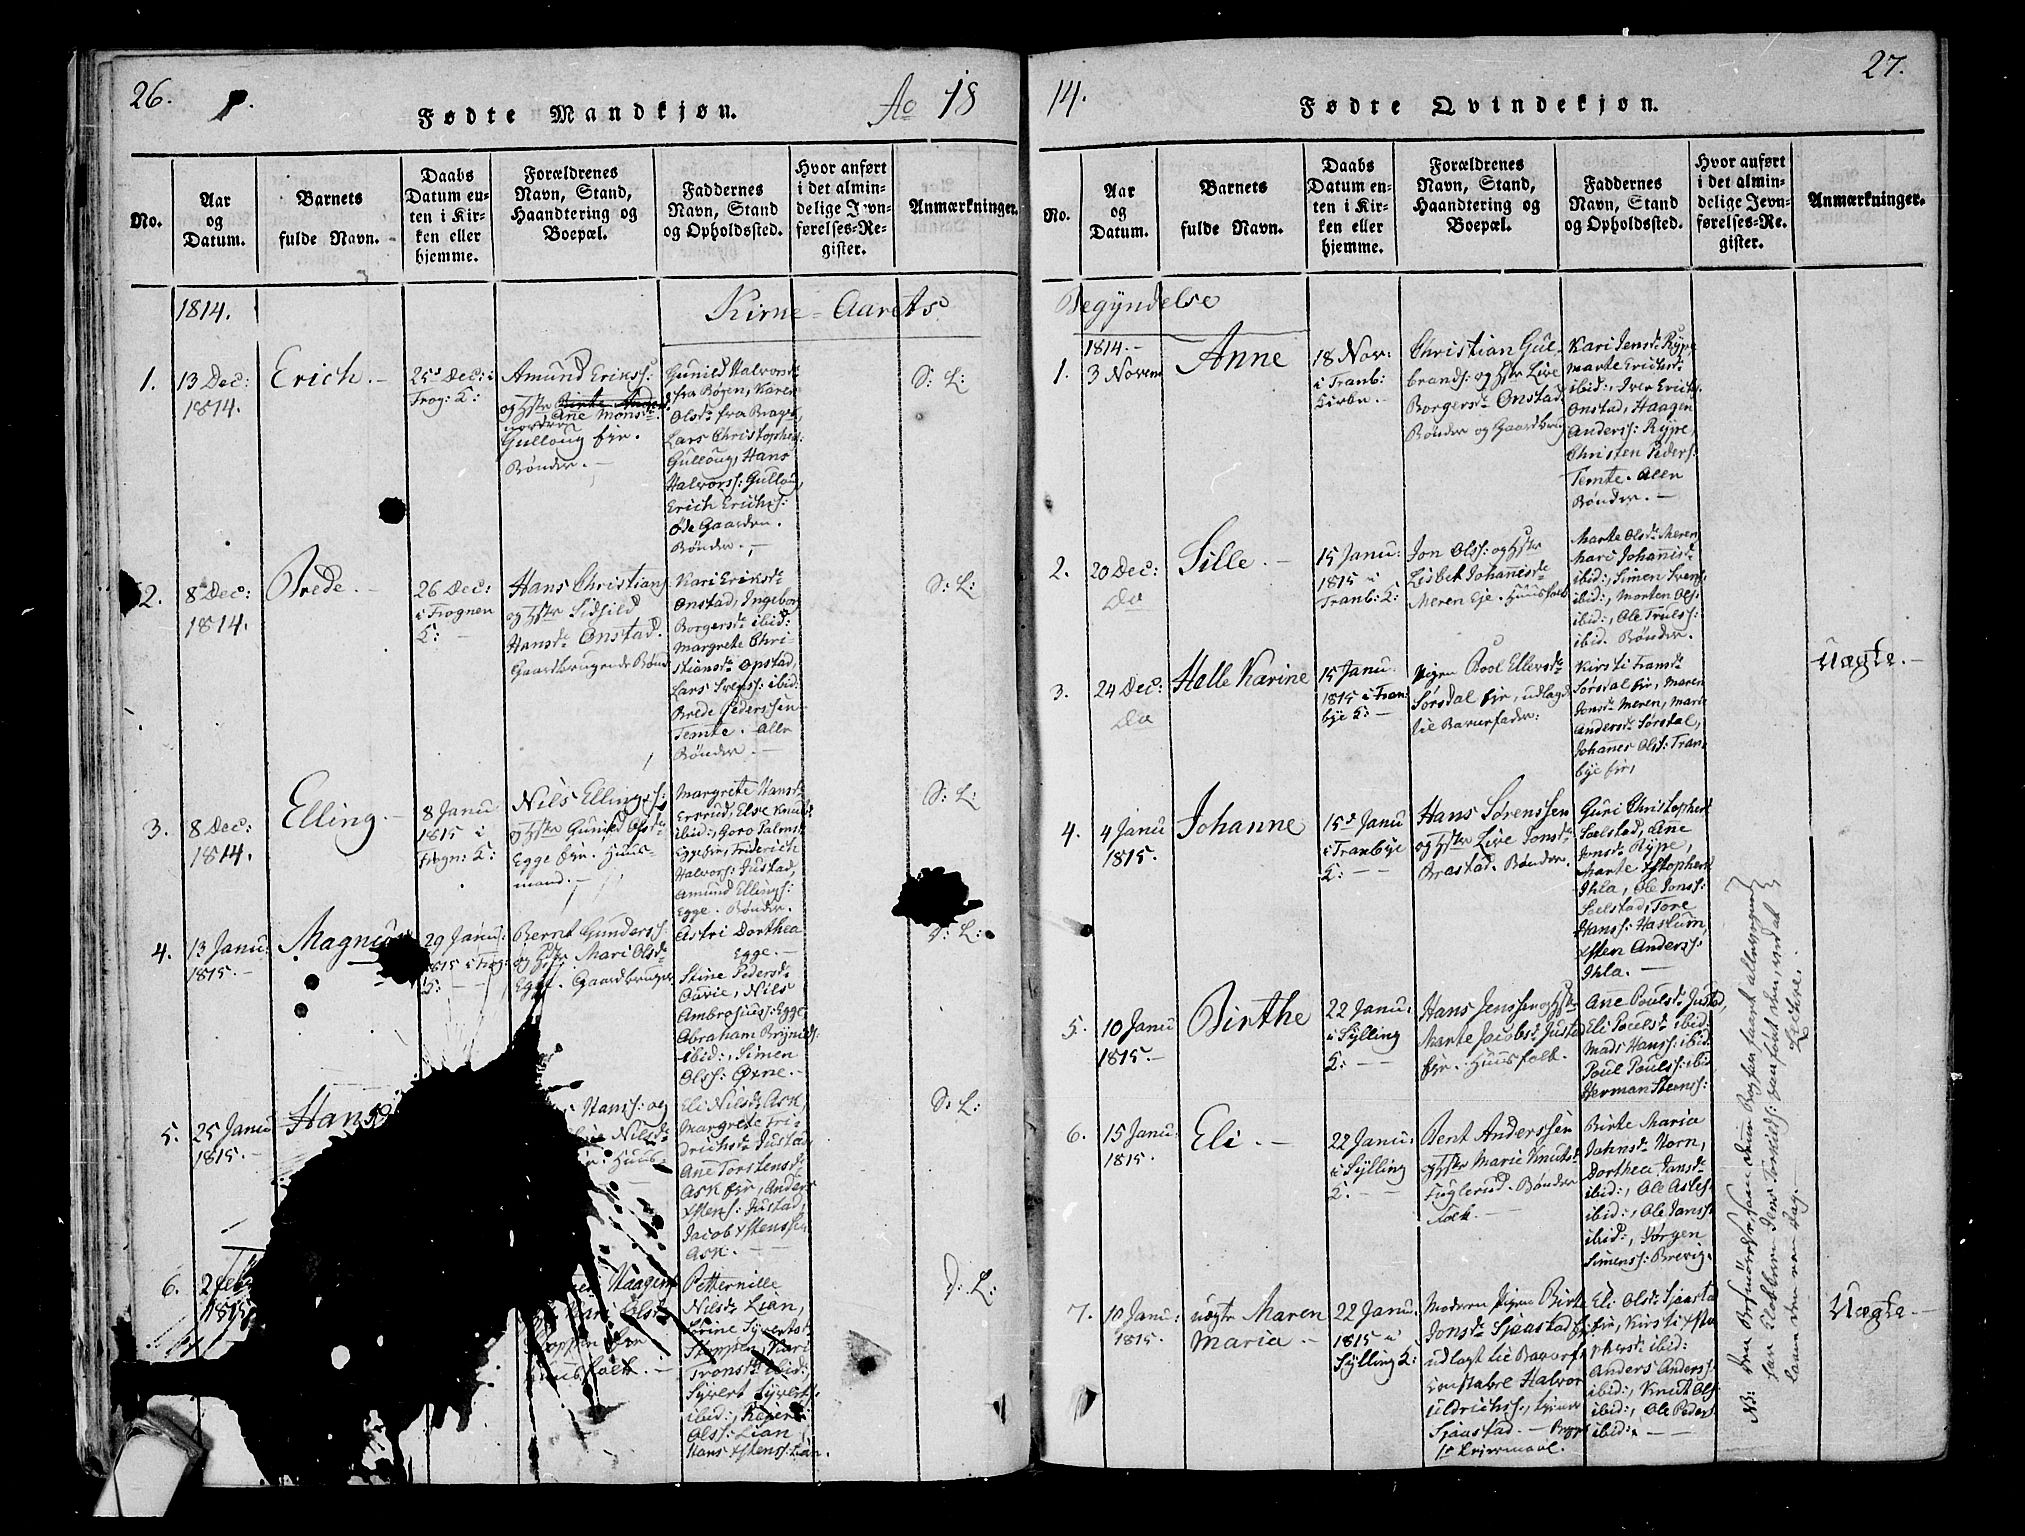 26.
Ao 18
Fødte Mandkjøn.
No.
Aar
og
Datum.
Barnets
fulde Navn.
Daabs
Datum en-
ten i Kir-
ken eller
hjemme.
Forældrenes
Navn, Stand,
Haandtering og
Boepæl.
Faddernes
Navn, Stand
og Opholdssted.
Hvor anført
i det almin-
delige Jevn-
førelses-Re-
gister.
Anmærkninger.
1814.
Kirke-Aarets
1.
13 Dec:
1814.
Erich.
25d Dec:
Trog: K:
Amund Erikss:
og Hstr Birte Anders
Ane Monsd:
nordre
Gulloug fir.
Bønder.
Gunild Halvorsd:
fra Bøgen, Karen
Olsd: fra Brager
Lars Christophers
Gulloug, Hans
Halvorss: Gulloug
Erich Erichs:
Øde Gaarden.
Bønder.
D: L:
2.
8 Dec:
1814.
Brede.
26 Dec:
i Frognen
K:
Hans Christians
og Hstr Sidsild
Hansd: Onstad.
Gaardbrugende Bønd
Kari Eriksd:
Onstad, Ingeborg
Borgersd: ibid:
Margrete Chri-
stiansd: Opstad,
Lars Svens: ibid:
Brede Pederssen
Temte. Alle
Bønder.
D: L:
3.
8 Dec:
1814.
Elling.
8 Janu
1815 i
Frogn: K:
Nils Ellings:
og Hstr Gunild Olsd:
Egge fir. Huus-
mand.
Margrete Hansd:
Ersrud, Else Knuds
ibid:, Goro Palms
Eggefir, Friderich
Halvors: Justad,
Amund Ellings:
Egge. Bønder.
D: L:
4.
13 Janu:
1815.
Magnus
29 Janu:
1815 i Frog:
K:
Bernt Gunders:
og Hstr Mari Olsd:
Egge. Gaardbruger
Astri Dorthea
Egge.
Stine Pedersd:
Aavie, Nils
Ambrosius: Egge
Abraham Brynilds:
ibid:, Simen
Olss: Øxne.
D: L:
5.
25 Janu
1815.
Hans
Hanss: og
Nilsd:
Huus-
Eli Nilsd: Ask,
Margrete Fri-
drichsd: Justad
Ane Torstensd:
Ask fir, Anders
Ystens: Justad,
Jacob Ystenssen
Ask.
D: L:
6.
2 Feb
1815
Haagens
Mari Olsd:
Stoppen fir
Huusfolk.
Petternille
Nilsd: Lian,
Sørine Syverts
Stoppen, Kari
Tronsd: ibid:,
Syvert Syverts:
ibid:, Reier
Olss: Lian
Hans Ystens: Lian.
D: L:
27.
14.
Fødte Qvindekjøn.
No.
Aar
og
Datum.
Barnets
fulde Navn.
Daabs
Datum en-
ten i Kir-
ken eller
hjemme.
Forældrenes
Navn, Stand,
Haandtering og
Boepæl.
Faddernes
Navn, Stand
og Opholdssted.
Hvor anført
i det almin-
delige Jevn-
førelses-Re-
gister.
Anmærkninger.
Begyndelse
1814.
1.
3 Novem
Anne
18 Nov:
i Tranb:
Kirke.
Christian Gul-
brands: og Hstr Live
Borgersd: Onstad
Bønder og Gaardbrug
Kari Jensd: Rype
Marte Erichsd:
ibid:, Iver Erichs:
Onstad, Haagen
Anderss: Rype,
Christen Peders:
Temte. Alle
Bønder.
2.
20 Dec:
Do
Sille.
15 Janu:
1815 i
Tranb: K:
Jon Olss: og Hstr
Lisbet Johanisd:
Meren Eje. Huusfolk
Marte Olsd: Meren
Mari Johanisd:
ibid:, Simen Svens:
ibid:, Morten Ols:
ibid:, Ole Truls:
ibid. Bønder.
3.
24 Dec:
Do
Helle Karine
15 Janu.
1815 i Tran
bye K:
Pigen Boel Ellevsd:
Sørsdal fir, udlagd
til Barnefader:
Kirsti Fransd:
Sørsdal fir, Maren
Jonsd: Meren, Maria
Andersd: Sørsdal,
Johanes Ols: Tran-
bye fir,
Uægte.
4.
4 Janu
1815.
Johanne
15d Janu
i Tranbye
K:
Hans Sørenssen
og Hstr Live Jonsd:
Brastad. Bønder.
Guri Christophers
Solstad, Line
Jensd: Rype,
Marte Xstophers
Ihla, Ole Jons:
Solstad, Tore
Hanss: Haslum,
Ysten Anders:
Ihla.
5.
10 Janu
1815.
Birthe
22 Janu:
i Sylling
K:
Hans Jenssen og Hstr
Marte Jacobsd: Justad
fir. Huusfolk.
Ane Poulsd: Justad,
Eli Poulsd: ibid:
Mads Hans: ibid:
Poul Pouls: ibid
Herman Steens:
6.
15 Janu:
1815.
Eli.
22 Janu:
i Sylling
K:
Bent Anderssen
og Hstr Marie Knutsd
Fuglerud. Bønder
Folk.
Birte Maria
Jahnsd: Horn,
Dorthea Jansd:
ibid:, Ole Asles:
ibid:, Ole Janss:
ibid:, Jørgen
Simenss: Brevig.
7.
10 Janu:
1815.
uægte Maren
Maria
22 Janu:
1815 i
Sylling K:
Moderen Pigen Birte
Jonsd: Sjaastad fir
udlagt til Barnef:
Constabel Halvor
Uldrichs:,
Sjaastad.
1te Leiermaal.
Eli Olsd: Sjaastad
fir, Kirsti Xsto
phersd: ibid:
Anders Anders:
ibid:, Knut Ols:
ibid:, Ole Peders:
ibid:
Uægte.
NB: Den